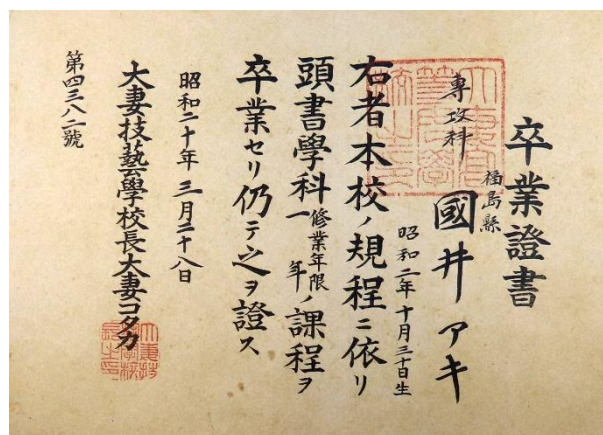 卒業證書
福島縣
專攻科 國井アキ
昭和二年十月三十日生
右者本校ノ規程ニ依リ
頭書學科修業年限一年ノ課程ヲ
卒業セリ仍テ之ヲ證ス
昭和二十年三月二十八日
大妻技藝學校長大妻コタカ
第四三八二號